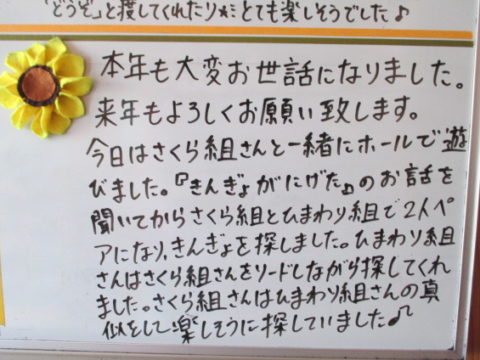 「どうぞ」と渡してくれたり☆ミとても楽しそうでした♪
本年も大変お世話になりました。
来年もよろしくお願い致します。
今日はさくら組さんと一緒にホールで遊
びました。『きんぎょがにげた』のお話を
聞いてからさくら組とひまわり組で2人ペ
アになり、きんぎょを探しました。ひまわり組
さんはさくら組さんをリードしながら探してくれ
ました。さくら組さんはひまわり組さんの真
似をして楽しそうに探していました♪